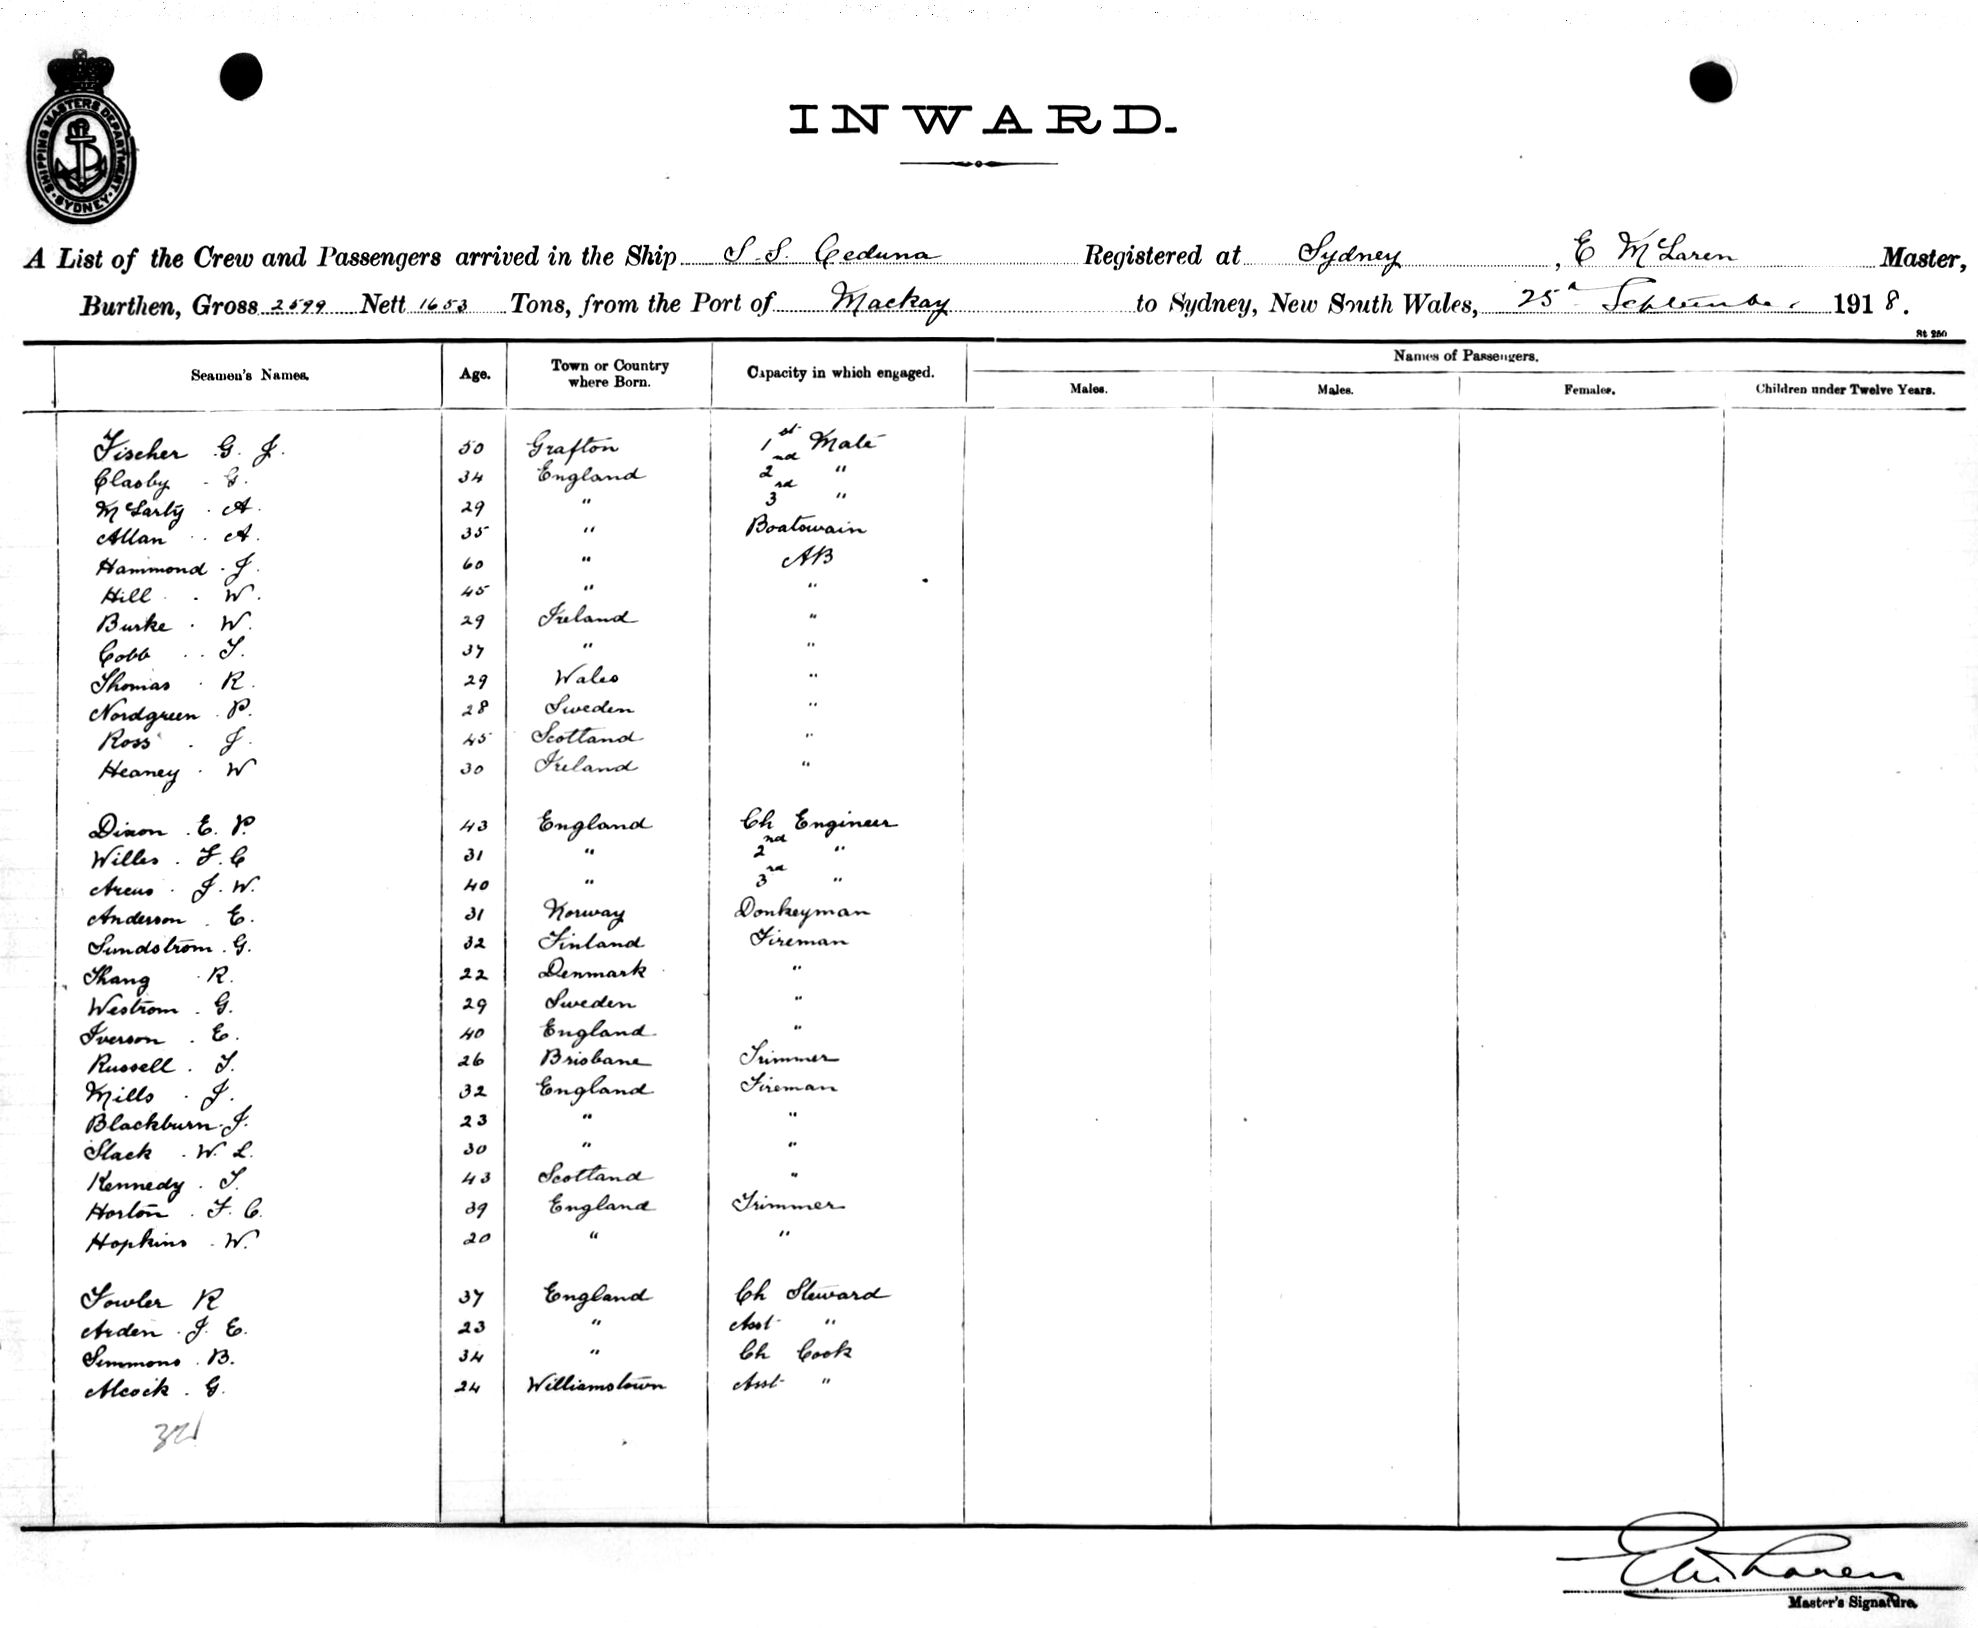 SHIPPING MASTERS DEPARTMENT · SYDNEY ·
INWARD.
A List of the Crew and Passengers arrived in the Ship S.S. Ceduna Registered at Sydney, E McLaren Master,
Burthen, Gross 2599 Nett 1653 Tons, from the Port of Mackay to Sydney, New South Wales, 25th September 1918.
St 250
Seamen's Names. Age. Town or Country where Born. Capacity in which engaged. Names of Passengers.
Males. Males. Females. Children under Twelve Years.
Fischer G. J. 50 Grafton 1st Mate
Clasby G. 34 England 2nd "
McLarty A. 29 " 3rd "
Allan A. 35 " Boatswain
Hammond J. 60 " AB
Hill W. 45 " "
Burke W. 29 Ireland "
Cobb T. 37 " "
Thomas R. 29 Wales "
Nordgreen P. 28 Sweden "
Ross J. 45 Scotland "
Heaney W 30 Ireland "
Dixon E. P. 43 England Ch Engineer
Willes F. C 31 " 2nd "
Arcus J. W. 40 " 3rd "
Anderson E. 31 Norway Donkeyman
Sundstrom G. 32 Finland Fireman
R. 22 Denmark "
Westrom G. 29 Sweden "
Iverson E. 40 England "
Russell T. 26 Brisbane Trimmer
Mills J. 32 England Fireman
Blackburn J. 23 " "
Slack W. L. 30 " "
Kennedy T. 43 Scotland "
Horton F. C. 39 England Trimmer
Hopkins W. 20 " "
Fowler R 37 England Ch Steward
Arden J. E. 23 " Asst "
Simmons B. 34 " Ch Cook
Alcock G. 24 Williamstown Asst "
32
E McLaren
Master's Signature.